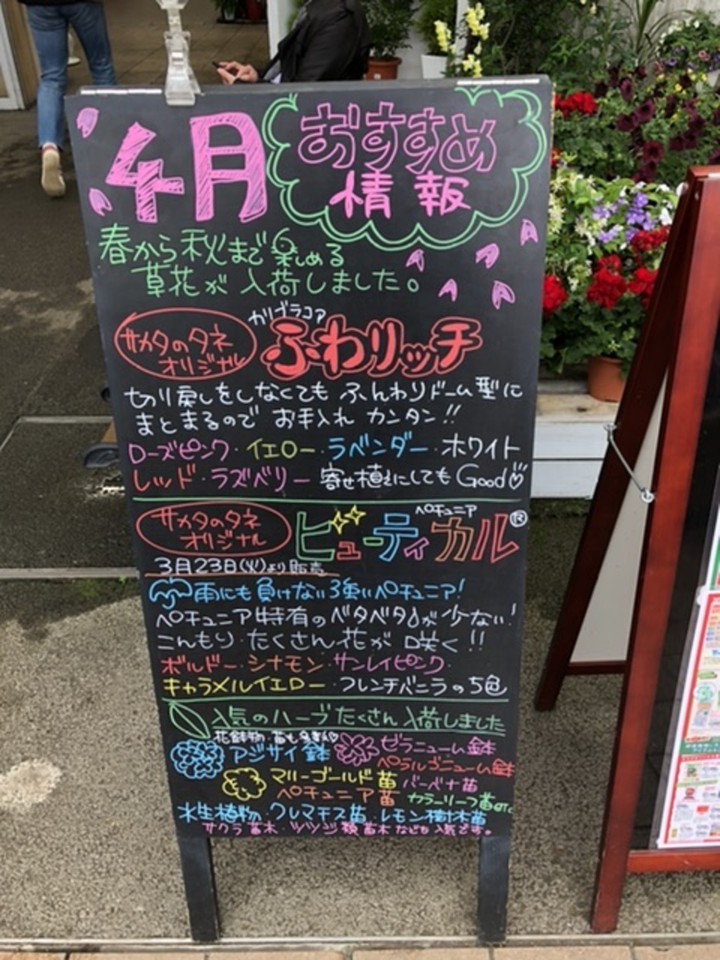 4月 おすすめ
情報
春から秋まで楽しめる
草花が入荷しました。
サカタのタネ
オリジナル
カリブラコア
ふわリッチ
切り戻しをしなくても ふんわりドーム型に
まとまるので お手入れ カンタン!!
ローズピンク・イエロー・ラベンダー・ホワイト
レッド・ラズベリー 寄せ植えにしてもGood
サカタのタネ
オリジナル
ペチュニア
ビューティカル®
3月23日(火)より販売
雨にも負けない強いペチュニア!
ペチュニア特有のベタベタが少ない!
こんもり・たくさん花が咲く!!
ボルドー・シナモン・サンレイピンク・
キャラメルイエロー・フレンチバニラの5色
人気のハーブたくさん入荷しました
花鉢物・苗も多数
アジサイ鉢 ゼラニューム鉢
ペラルゴニューム鉢
マリーゴールド苗 バーベナ苗
ペチュニア苗 カラーリーフ苗etc
水生植物・クレマチス苗・レモン樹木苗
サクラ苗木・ツツジ類苗木なども人気です。